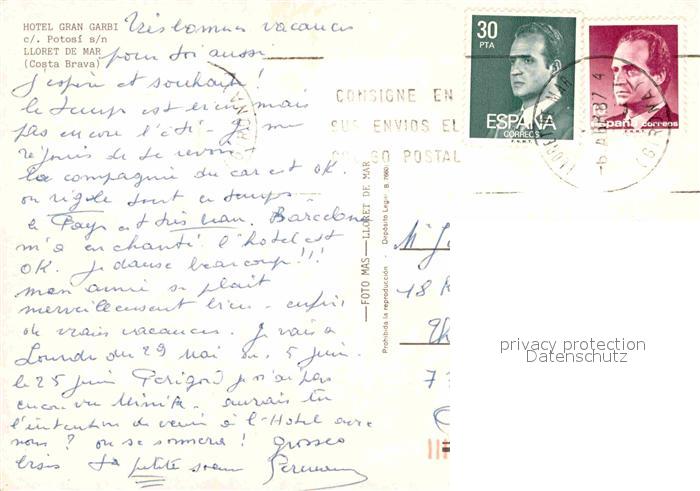 HOTEL GRAN GARBI
c/. Potosí s/n
LLORET DE MAR
(Costa Brava)
Très bonnes vacances
pour toi aussi
J'espère et souhaite !
le temps est bien mais
pas encore l'été. Je me
réjouis de te revoir
La compagnie du car est OK.
on rigole tout en temps.
le Pays est très beau. Barcelone
m'a enchanté. l'hôtel est
OK. Je danse beaucoup !!!
mon amie se plaît
merveilleusement bien - enfin
de vraies vacances. Je vais à
Lourdes du 29 Mai au 5 juin.
le 25 juin Périgord je n'ai pas
encore vu aurais tu
l'intention de venir à l'Hôtel avec
nous ? on se sonnera ! grosses
bises ta petite soeur
FOTO MAS — LLORET DE MAR
Prohibida la reproducción · Depósito Legal B. 7660
CONSIGNE EN
SUS ENVIOS EL
CODIGO POSTAL
30
PTA
ESPAÑA
CORREOS
F.N.M.T.
España correos
F.N.M.T.
LLORET DE MAR
(GIRONA)
18
privacy protection
Datenschutz